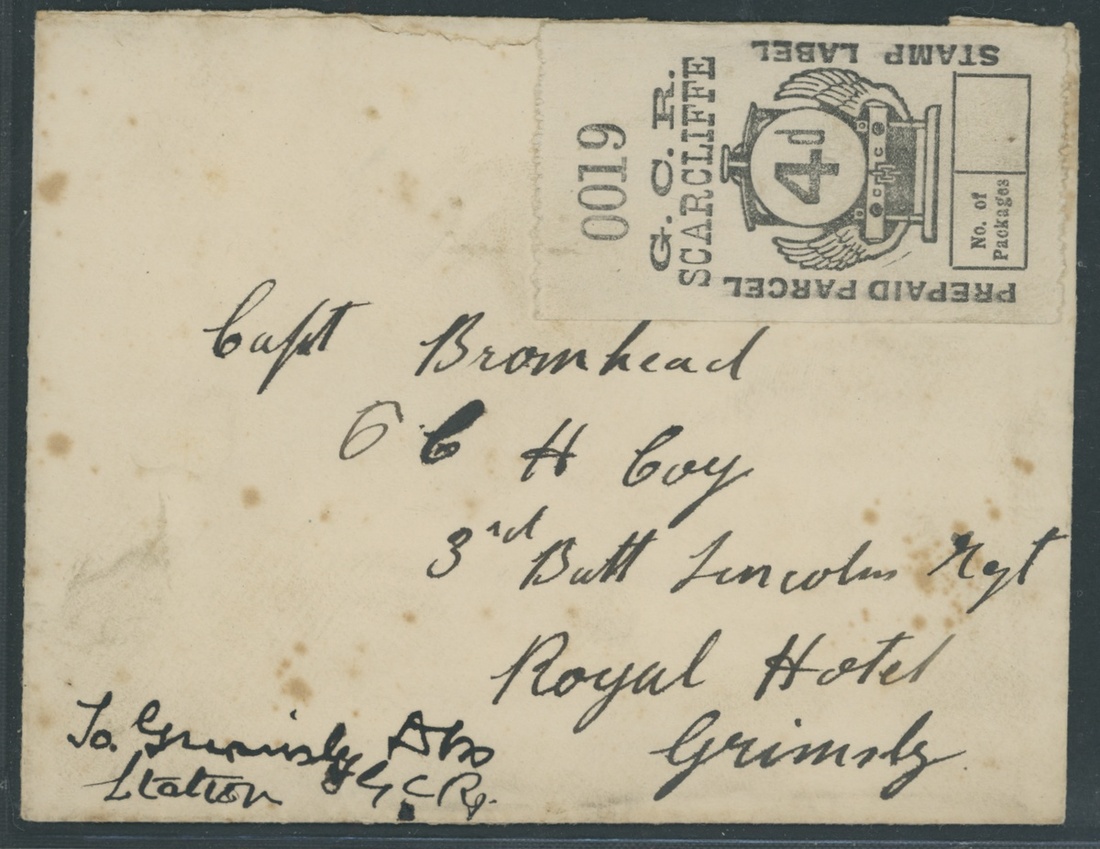 0019
G. C. R.
SCARCLIFFE
PREPAID PARCEL
STAMP LABEL
4d
GC
No. of
Packages
Capt Bromhead
6 C H Coy
3rd Batt Lincolns Regt
Royal Hotel
Grimsby
To. Grimsby
Station G C Ry.